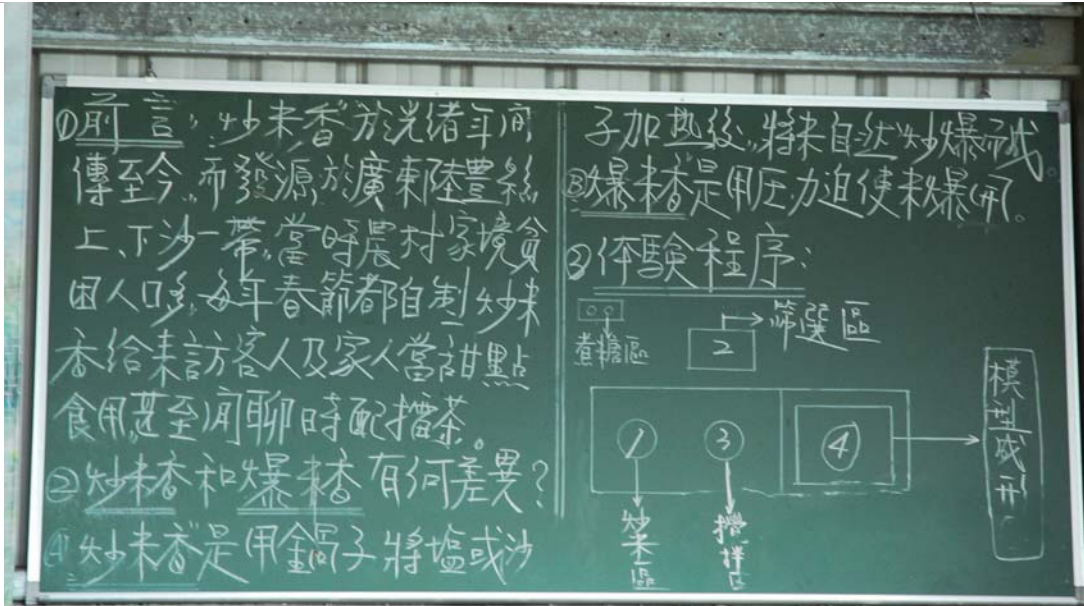 ①前言:炒米香於光緒年間
傳至今,而發源於廣東陸豐縣
上、下沙一帶,當時農村家境貧
困人口多,每年春節都自制炒米
香給來訪客人及家人當甜點
食用,甚至閒聊時配擂茶。
②炒米香和爆米香有何差異?
Ⓐ炒米香是用鍋子將塩或沙
子加热後,將米自然炒爆而成
Ⓑ爆米香是用压力迫使米爆開。
③体驗程序:
煮糖區
2
篩選區
1
3
4
炒米區
攪拌區
模型成形